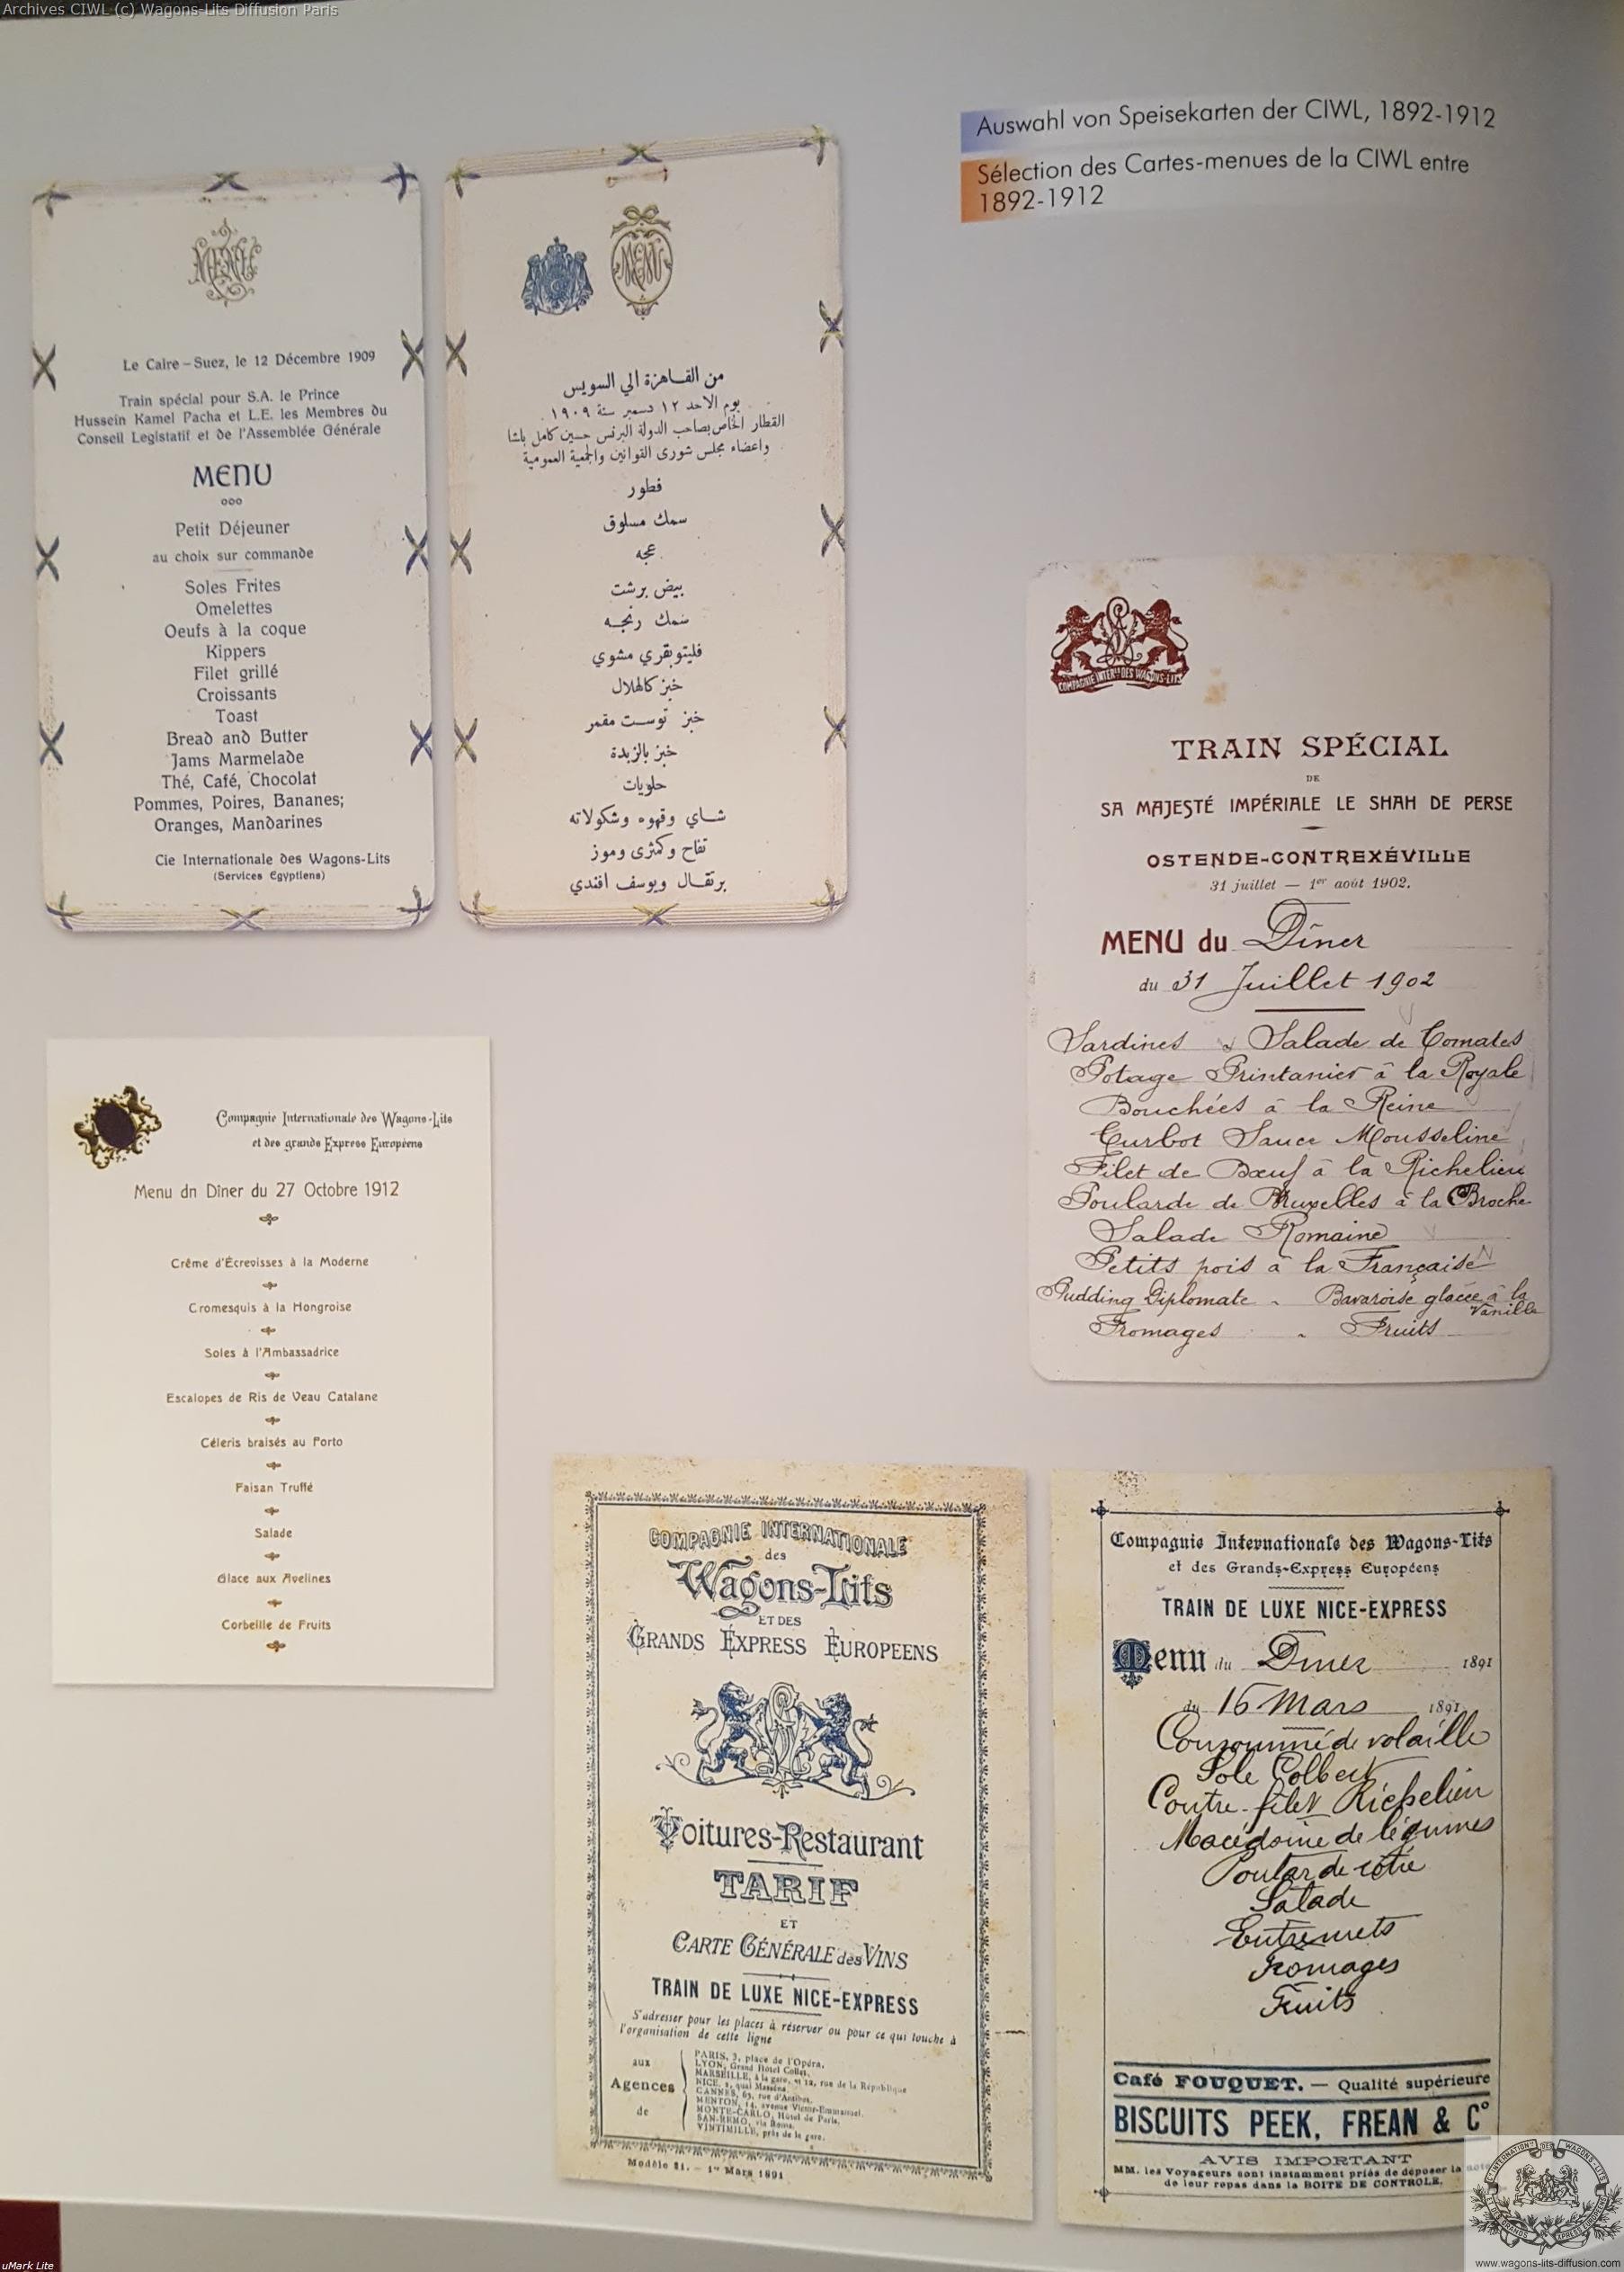 Archives CIWL (c) Wagons-Lits Diffusion Paris
Auswahl von Speisekarten der CIWL, 1892-1912
Sélection des Cartes-menues de la CIWL entre
1892-1912
MENU
Le Caire – Suez, le 12 Décembre 1909
Train spécial pour S.A. le Prince
Hussein Kamel Pacha et L.E. les Membres du
Conseil Legistatif et de l'Assemblée Générale
MENU
Petit Déjeuner
au choix sur commande
Soles Frites
Omelettes
Oeufs à la coque
Kippers
Filet grillé
Croissants
Toast
Bread and Butter
Jams Marmelade
Thé, Café, Chocolat
Pommes, Poires, Bananes;
Oranges, Mandarines
Cie Internationale des Wagons-Lits
(Services Egyptiens)
MENU
من القاهرة الي السويس
يوم الاحد ١٢ دسمبر سنة ١٩٠٩
القطار الخاص بصاحب الدولة البرنس حسين كامل باشا
واعضاء مجلس شورى القوانين والجمعية العمومية
فطور
سمك مسلوق
عجه
بيض برشت
سمك رنجه
فليتو بقري مشوي
خبز كالهلال
خبز توست مقمر
خبز بالزبدة
حلويات
شاي وقهوه وشكولاته
تفاح وكمثرى وموز
برتقال ويوسف افندي
COMPAGNIE INTERle DES WAGONS-LITS
TRAIN SPÉCIAL
DE
SA MAJESTÉ IMPÉRIALE LE SHAH DE PERSE
OSTENDE-CONTREXÉVILLE
31 juillet — 1er août 1902.
MENU du Dîner
du 31 Juillet 1902
Sardines Salade de Tomates
Potage Printanier à la Royale
Bouchées à la Reine
Turbot Sauce Mousseline
Filet de Bœuf à la Richelieu
Poularde de Bruxelles à la Broche
Salade Romaine
Petits pois à la Française
Pudding Diplomate - Bavaroise glacée à la
Vanille
Fromages - Fruits
Compagnie Internationale des Wagons-Lits
et des grands Express Européens
Menu dn Dîner du 27 Octobre 1912
Crême d'Écrevisses à la Moderne
Cromesquis à la Hongroise
Soles à l'Ambassadrice
Escalopes de Ris de Veau Catalane
Céleris braisés au Porto
Faisan Truffé
Salade
Glace aux Avelines
Corbeille de Fruits
COMPAGNIE INTERNATIONALE
des
Wagons-Lits
ET DES
GRANDS EXPRESS EUROPEENS
Voitures-Restaurant
TARIF
ET
CARTE GÉNÉRALE des VINS
TRAIN DE LUXE NICE-EXPRESS
S'adresser pour les places à réserver ou pour ce qui touche à
l'organisation de cette ligne
aux
Agences
de
PARIS, 3, place de l'Opéra.
LYON, Grand Hôtel Collet.
MARSEILLE, à la gare, et 12, rue de la République
NICE, 2, quai Masséna.
CANNES, 65, rue d'Antibes.
MENTON, 14, avenue Victor-Emmanuel.
MONTE-CARLO, Hôtel de Paris.
SAN-REMO, via Roma.
VINTIMILLE, près de la gare.
Modèle 21. — 1er Mars 1891
Compagnie Internationale des Wagons-Lits
et des Grands-Express Européens
TRAIN DE LUXE NICE-EXPRESS
Menu du Diner 1891
du 16 Mars 1891
Consommé de volaille
Sole Colbert
Contre-filet Richelieu
Macédoine de légumes
Poularde rôtie
Salade
Entremets
Fromages
Fruits
Café FOUQUET. — Qualité supérieure
BISCUITS PEEK, FREAN & Co
AVIS IMPORTANT
MM. les Voyageurs sont instamment priés de déposer la note
de leur repas dans la BOITE DE CONTROLE.
www.wagons-lits-diffusion.com
uMark Lite